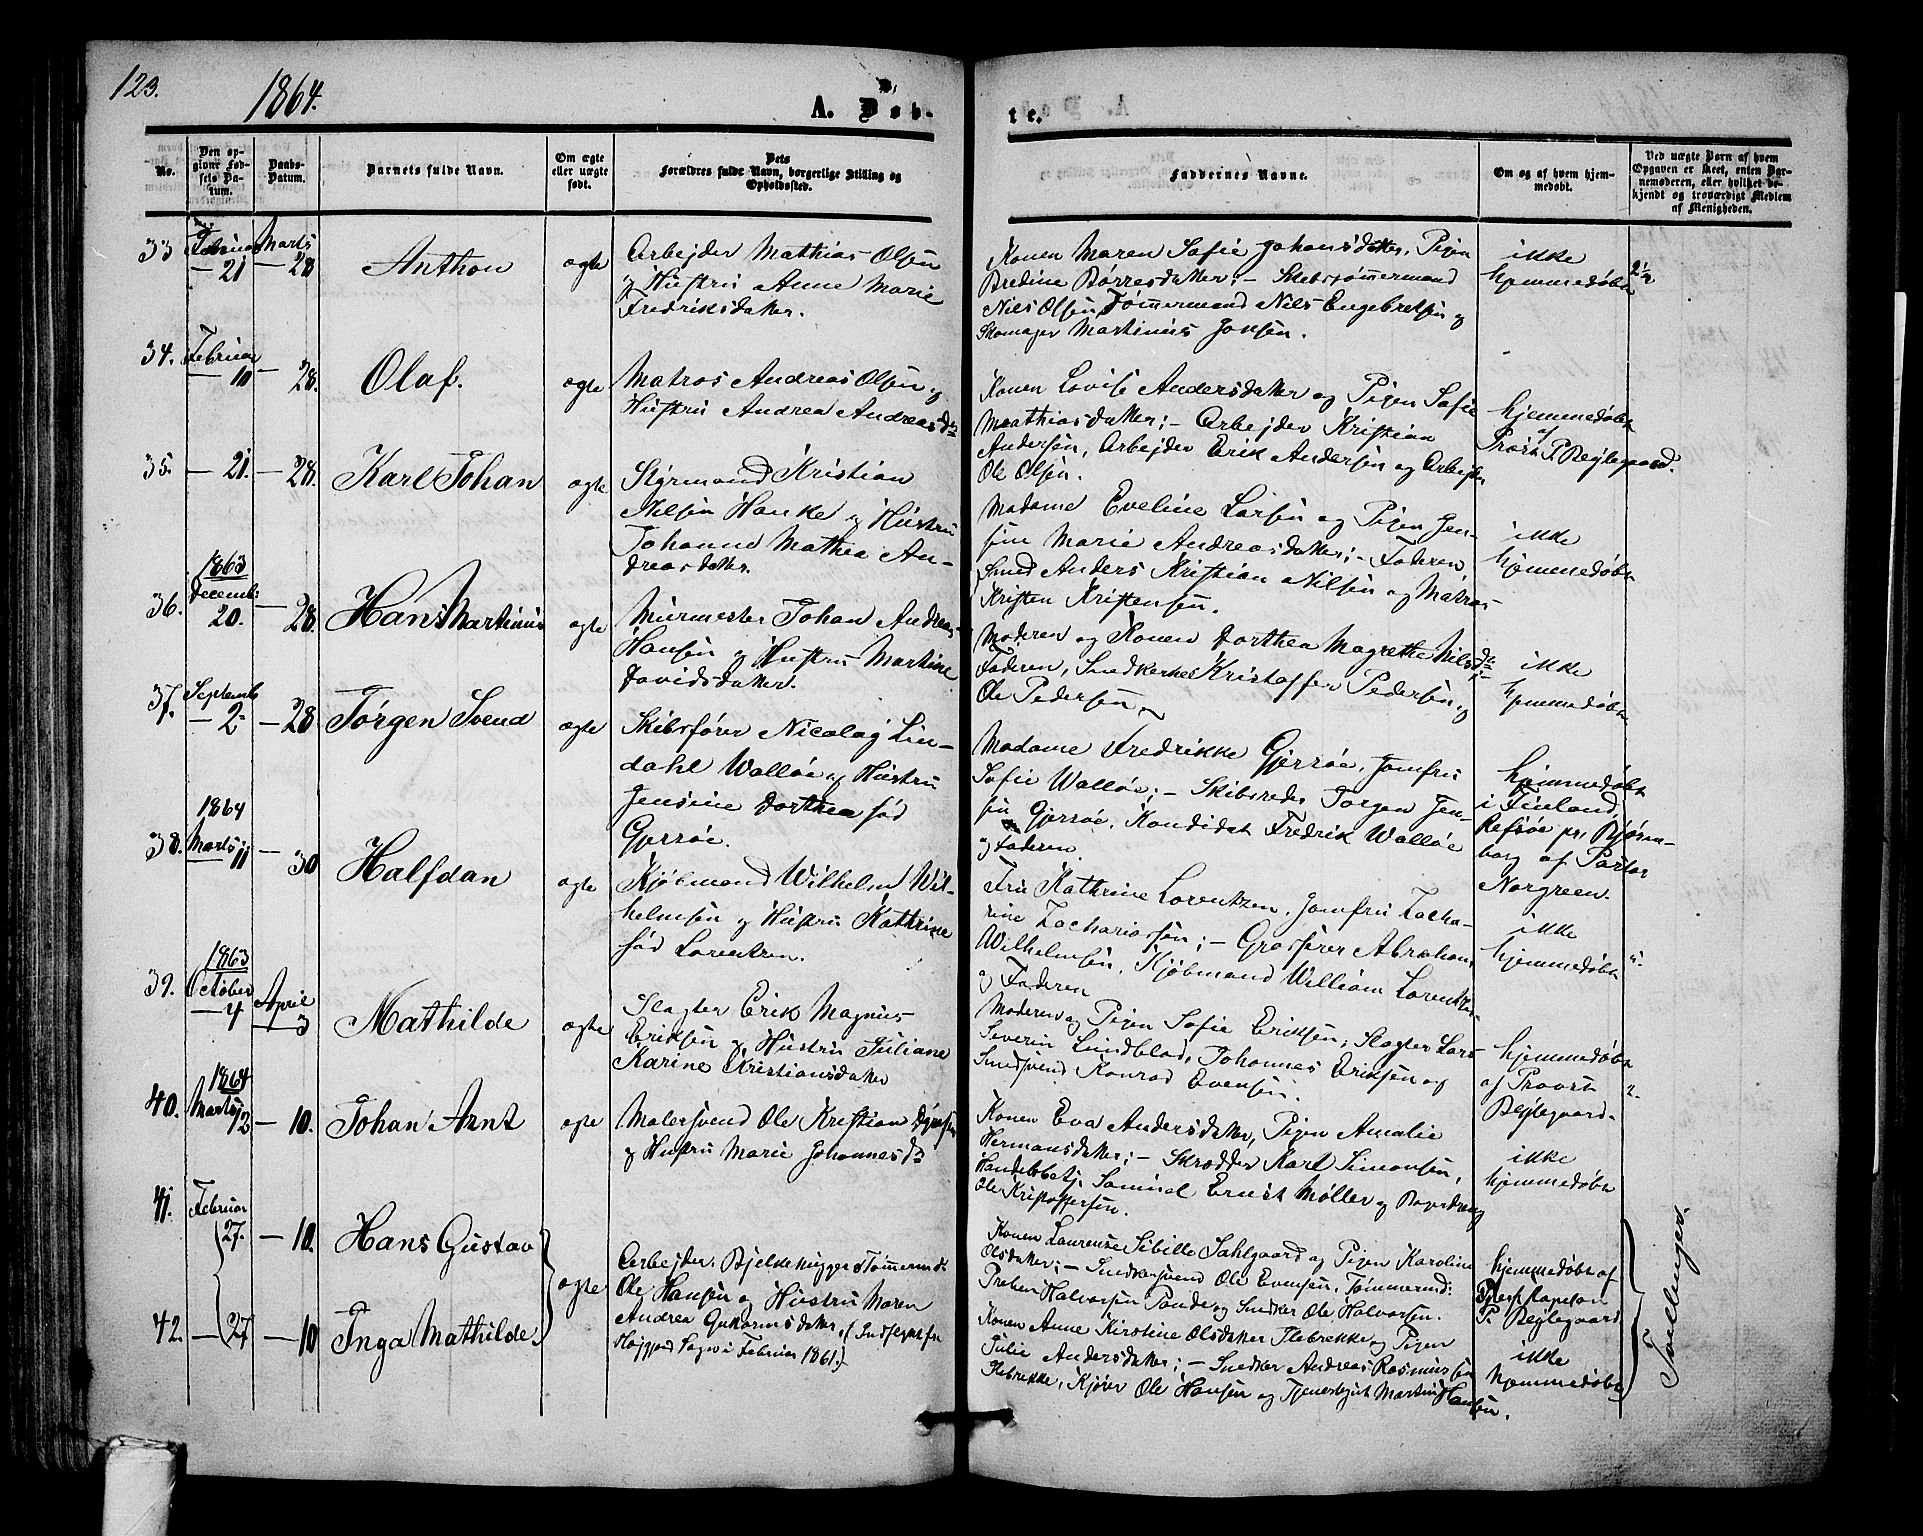 123.
1864.
A. Døb-
te.
No.
Den op-
givne Fød-
sels Da-
tum.
Daabs-
Datum.
Barnets fulde Navn.
Om ægte
eller uægte
født.
Dets
Forældres fulde Navn, borgerlige Stilling og
Opholdssted.
Faddernes Navne.
Om og af hvem hjem-
medøbt.
Ved uægte Barn af hvem
Opgaven er skeet, enten Bar-
nemoderen, eller hvilket be-
kjendt og troværdigt Medlem
af Menigheden.
33
Februar
— 21
Marts
— 28
Anthon
ægte
Arbejder Mathias Olsen
og Hustru Anne Marie
Fredriksdatter.
Konen Maren Sofie Johansdatter, Pigen
Bredine Børresdatter; - Skibstømmermand
Niels Olsen, Tømmermand Nils Engebretsen og
Skomager Martinius Jonsen.
ikke
hjemmedøbt
34.
Februar
— 10
— 28.
Olaf.
ægte
Matros Andreas Olsen og
Hustru Andrea Andreasdr
Konen Lovise Andersdatter og Pigen Sofie
Matthiasdatter; - Arbejder Kristian
Andersen, Arbejder Erik Andersen og Arbejder
Ole Olsen.
hjemmedøbt
af
Provst P Bejlegaard.
35.
— 21.
— 28.
Karl Johan
ægte
Styrmand Kristian
Nilsen Hanke og Hustru
Johanne Mathea An-
dreasdatter.
Madame Eveline Larsen og Pigen Jen-
sine Marie Andreasdatter; - Faderen
Smed Anders Kristian Nilsen og Matros
Kristen Kristensen.
ikke
hjemmedøbt
1863
36.
Decemb:
20.
— 28.
Hans Martinius
ægte
Murmester Johan Andreas
Hansen og Hustru Martine
Davidsdatter.
Moderen og Konen Dorthea Magrethe Nilsdr;
Faderen, Snedker Kristoffer Pedersen og
Ole Pedersen
ikke
hjemmedøbt
37.
Septemb
— 2
— 28
Jørgen Svend
ægte
Skibsfører Nicolaj Lin-
dahl Walløe og Hustru
Jensine Dorthea fød
Gjersøe.
Madame Fredrikke Gjersøe, Jomfru
Sofie Walløe; - Skibsreder Jørgen Jen-
sen Gjersøe, Kandidat Fredrik Walløe
og Faderen.
hjemmedøbt
i Finland,
Refsöe pr. Bjørne-
borg af Pastor
Norgreen.
1864
38.
Marts
— 11
— 30
Halfdan
ægte
Kjøbmand Wilhelm Wil-
helmsen og Hustru Kathrine
fød Lorentzen.
Fru Kathrine Lorentzen, Jomfru Zacha-
rine Zachariassen; - Grosserer Abraham
Wilhelmsen, Kjøbmand William Lorentzen
og Faderen
ikke
hjemmedøbt
1863
39.
October
— 4
April
3
Mathilde
ægte
Slagter Erik Magnus
Eriksen og Hustru Juliane
Karine Kristiansdatter
Moderen og Pigen Sofie Eriksen; Slagter Lars
Severin Lundblad, Johannes Eriksen og
Smedsvend Konrad Evensen.
hjemmedøbt
af Provst
Bejlegaard.
1864
40.
Marts
12
— 10.
Johan Arnt
ægte
Malersvend Ole Kristian
og Hustru Marie Johannesdr
Konen Eva Andersdatter, Pigen Amalie
Hermansdatter; - Skrædder Karl Simonsen,
Handelsbetj. Samuel Ernst Møller og
Ole Kristoffersen.
ikke
hjemmedøbt
41.
Februar
27.
— 10.
Hans Gustav
ægte
Arbejder, Bjelkehugger Tømermd:
Ole Hansen og Hustru Maren
Andrea Gutormsdatter, (Indflyttet fra
Højjord Sogn i Februar 1861.)
Konen Laurense Sibille Sahlgaard og Pigen Karoline
Olsdatter; - Snedkersvend Ole Evensen, Tømmermd:
Preben Halvorsen Ponde og Snedker Ole Halvorsen.
hjemmedøbt af
Pers. Kapellan
P. Bejlegaard
42.
— 27
— 10
Inga Mathilde
Konen Anne Kirstine Olsdatter Flebrekke og Pigen
Julie Andersdatter; - Snedker Andreas Rasmussen
Flebrekke, Kjører Ole Hansen og Tjenestegut Martin Hansen.
ikke
hjemmedøbt
Tvillinger.